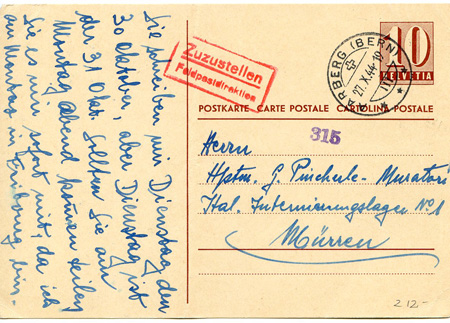 Sie schreiben mir Dienstag den
30 Oktober, aber Dienstag ist
der 31 Okt. Sollten Sie am
Montag Abend kommen teilen
Sie es mir sofort mit, da ich
am Montag in Fribourg bin.
Zuzustellen
Feldpostdirektion
AARBERG (BERN)
27.X.44-18
10
HELVETIA
POSTKARTE CARTE POSTALE CARTOLINA POSTALE
315
Herrn
Hptm. G. Pincherle-Muratori
Ital. Internierungslager No 1
Mürren
2 12.-